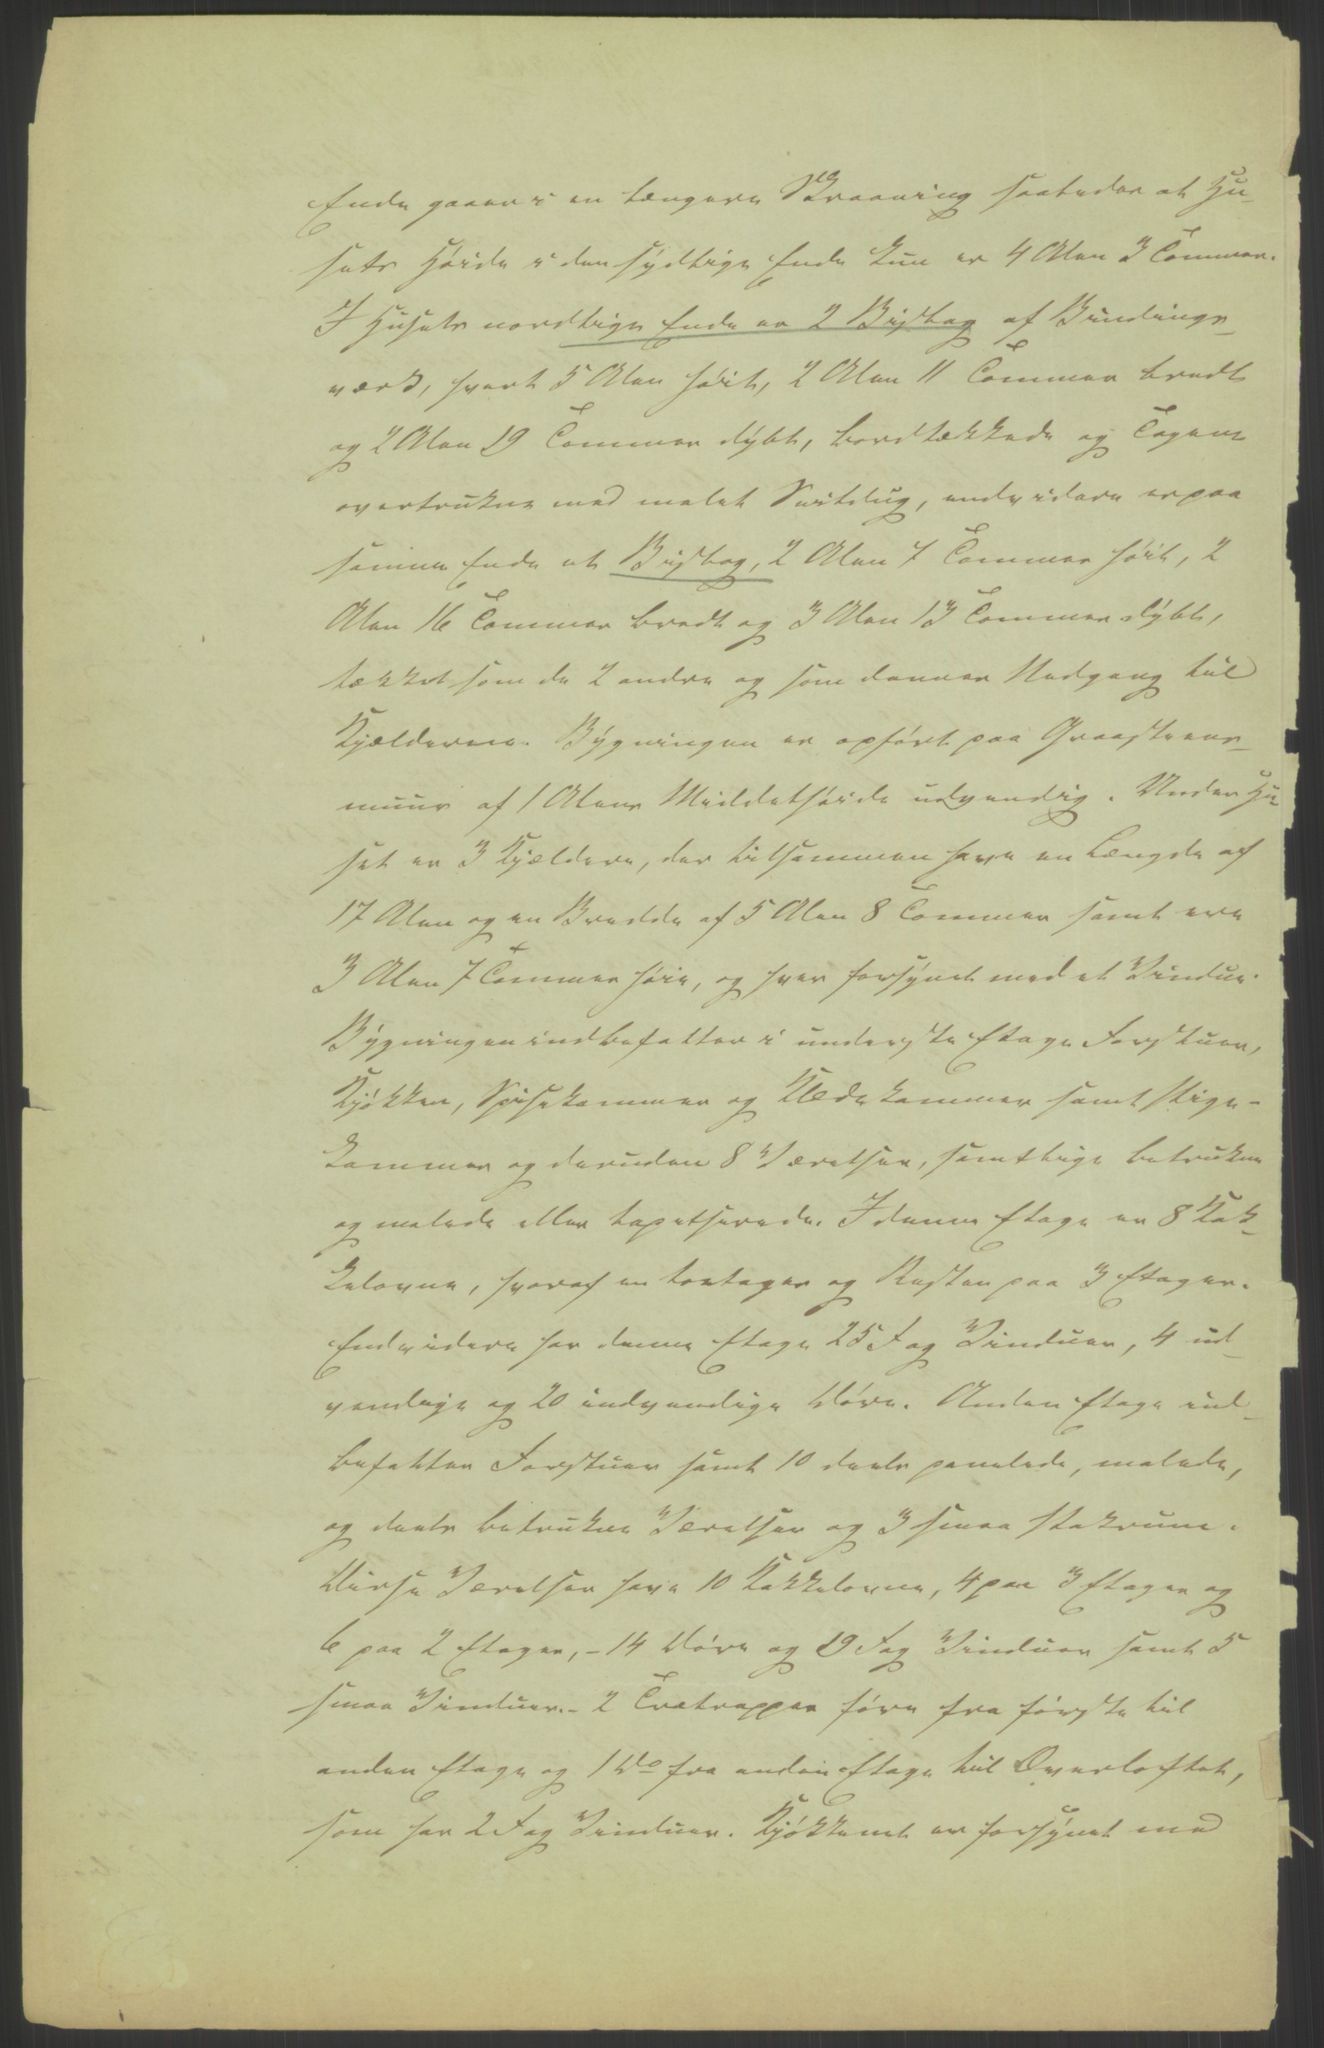 Ende gaaer i en længere Skraaning saaledes at Hu-
sets Høide i den sydlige Ende kun er 4 Alen 3 Tommer.
I Husets nordlige Ende er 2 Bislag af Bindings-
værk, hvert 5 Alen høit, 2 Alen 11 Tommer bredt
og 2 Alen 19 Tommer dybt, bordtækkede og Tagene
overtrukne med malet Seildug, endvidere er paa
samme Ende et Bislag, 2 Alen 7 Tommer høit, 2
Alen 16 Tommer bredt og 3 Alen 13 Tommer dybt,
tækket som de 2 andre og som danner Nedgang til
Kjælderne. Bygningen er opført paa Graasteens-
muur af 1 Alens Middelhøide udvendig. Under Hu-
set er 3 Kjældere, der tilsammen have en Længde af
17 Alen og en Bredde af 5 Alen 8 Tommer samt ere
3 Alen 7 Tommer høie, og hver forsynet med et Vindue.
Bygningen indbefatter i underste Etage Forstuer,
Kjøkken, Spisekammer og Klædekammer samt Pige-
kammer og desuden 8 Værelser, samtlige betrukne
og malede eller tapetserede. I denne Etage er 8 Kak-
kelovne, hvoraf en toetages og Resten paa 3 Etager.
Endvidere har denne Etage 25 Fag Vinduer, 4 ud-
vendige og 20 indvendige Døre. Anden Etage ind-
befatter Forstuer samt 10 deels panelede, malede,
og deels betrukne Værelser og 3 smaa Stekrum.
Disse Værelser have 10 Kakkelovne, 4 paa 3 Etager og
6 paa 2 Etager, - 14 Døre og 29 Fag Vinduer samt 5
smaa Vinduer. - 2 Trætrapper føre fra første til
anden Etage og 1 Do fra anden Etage til Overloftet,
som har 2 Fag Vinduer. Kjøkkenet er forsynet med